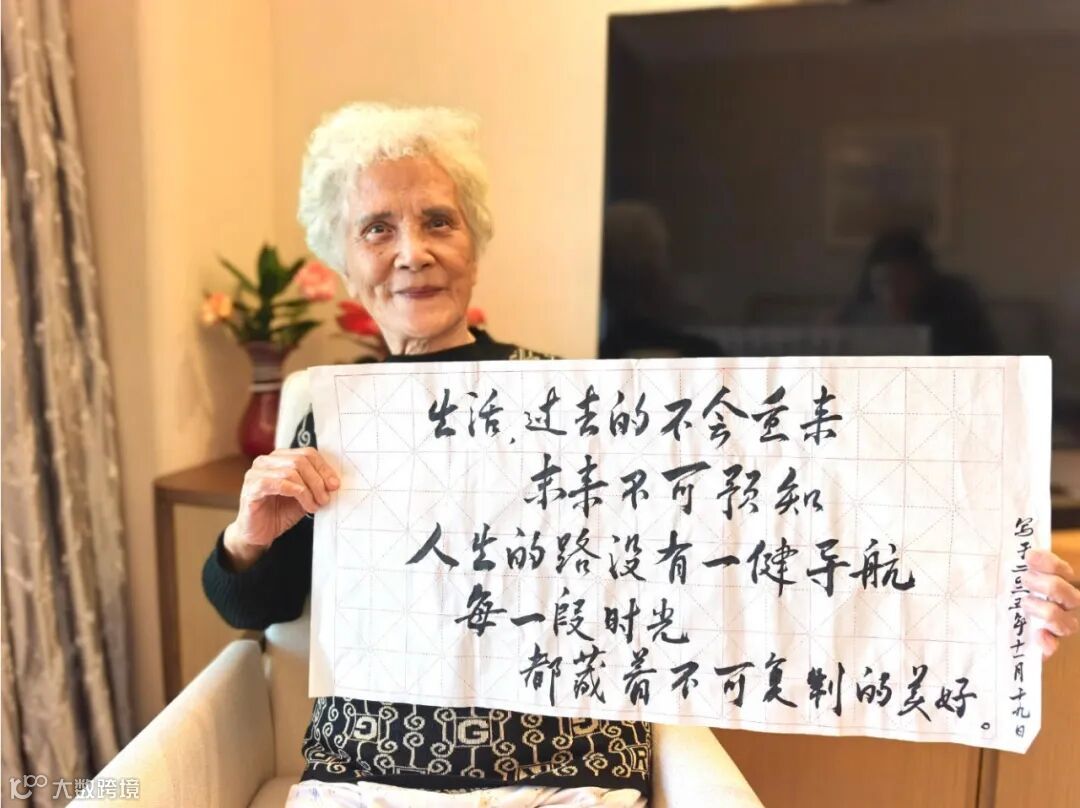 生活,过去的不会重来
未来不可预知
人生的路没有一健导航
每一段时光
都藏着不可复制的美好。
写于二〇二五年十一月十九日
大数跨境